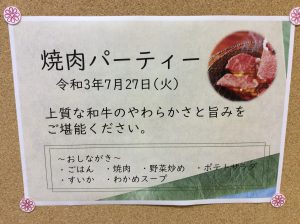 焼肉パーティー
令和3年7月27日(火)
上質な和牛のやわらかさと旨みを
ご堪能ください。
～おしながき～
・ごはん ・焼肉 ・野菜炒め ・ポテトサラダ
・すいか ・わかめスープ